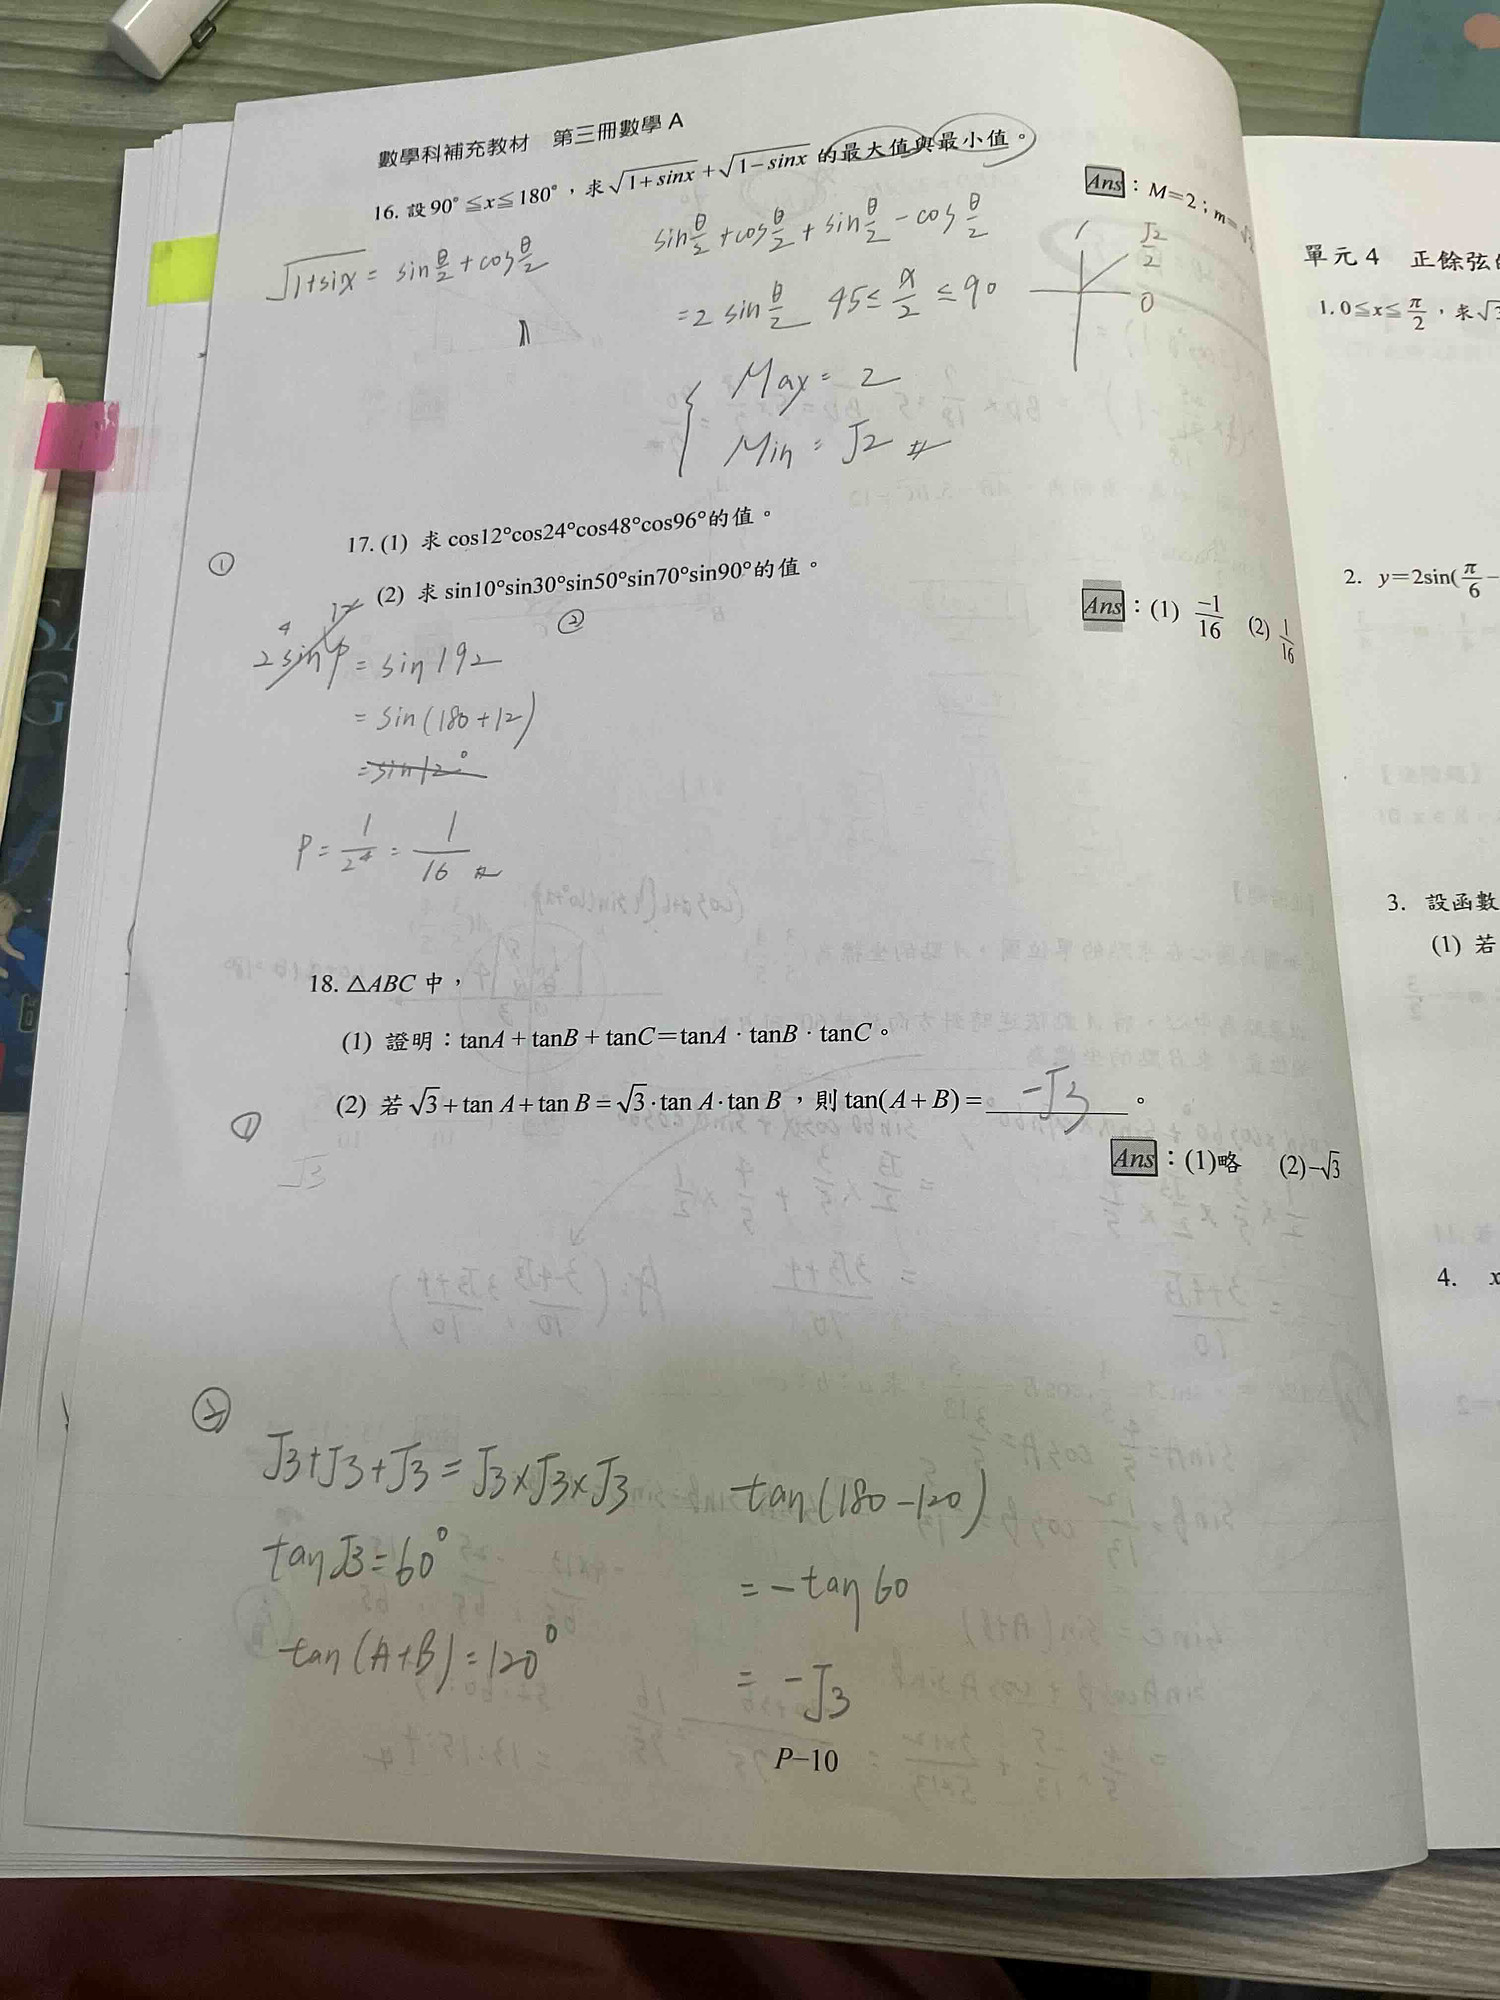 數學科補充教材 第三冊數學 A
16. 設 90°≦x≦180°，求√(1+sinx)+√(1−sinx) 的最大值與最小值。
Ans：M=2；m=
√(1+sinx) = sin θ/2 + cos θ/2
sin θ/2 + cos θ/2 + sin θ/2 − cos θ/2
= 2 sin θ/2 45≤ x/2 ≤90
1
√2/2
0
Max = 2
Min = √2 #
17. (1) 求 cos12°cos24°cos48°cos96°的值。
①
(2) 求 sin10°sin30°sin50°sin70°sin90°的值。
②
Ans：(1) −1/16 (2) 1/16
2⁴ sin12 P = sin192
= sin(180+12)
= sin12°
P = 1/2⁴ = 1/16 #
18. △ABC 中，
(1) 證明：tanA + tanB + tanC=tanA · tanB · tanC。
(2) 若 √3 + tan A + tan B = √3 · tan A · tan B ，則 tan(A + B) = −√3 。
①
√3
Ans：(1)略 (2)−√3
②
√3+√3+√3 = √3×√3×√3
tan√3=60°
tan(A+B)=120°
tan(180−120)
= −tan60
= −√3
P−10
單元 4 正餘弦
1. 0≦x≦π/2，求√
2. y=2sin(π/6−
3. 設函數
(1) 若
4. x